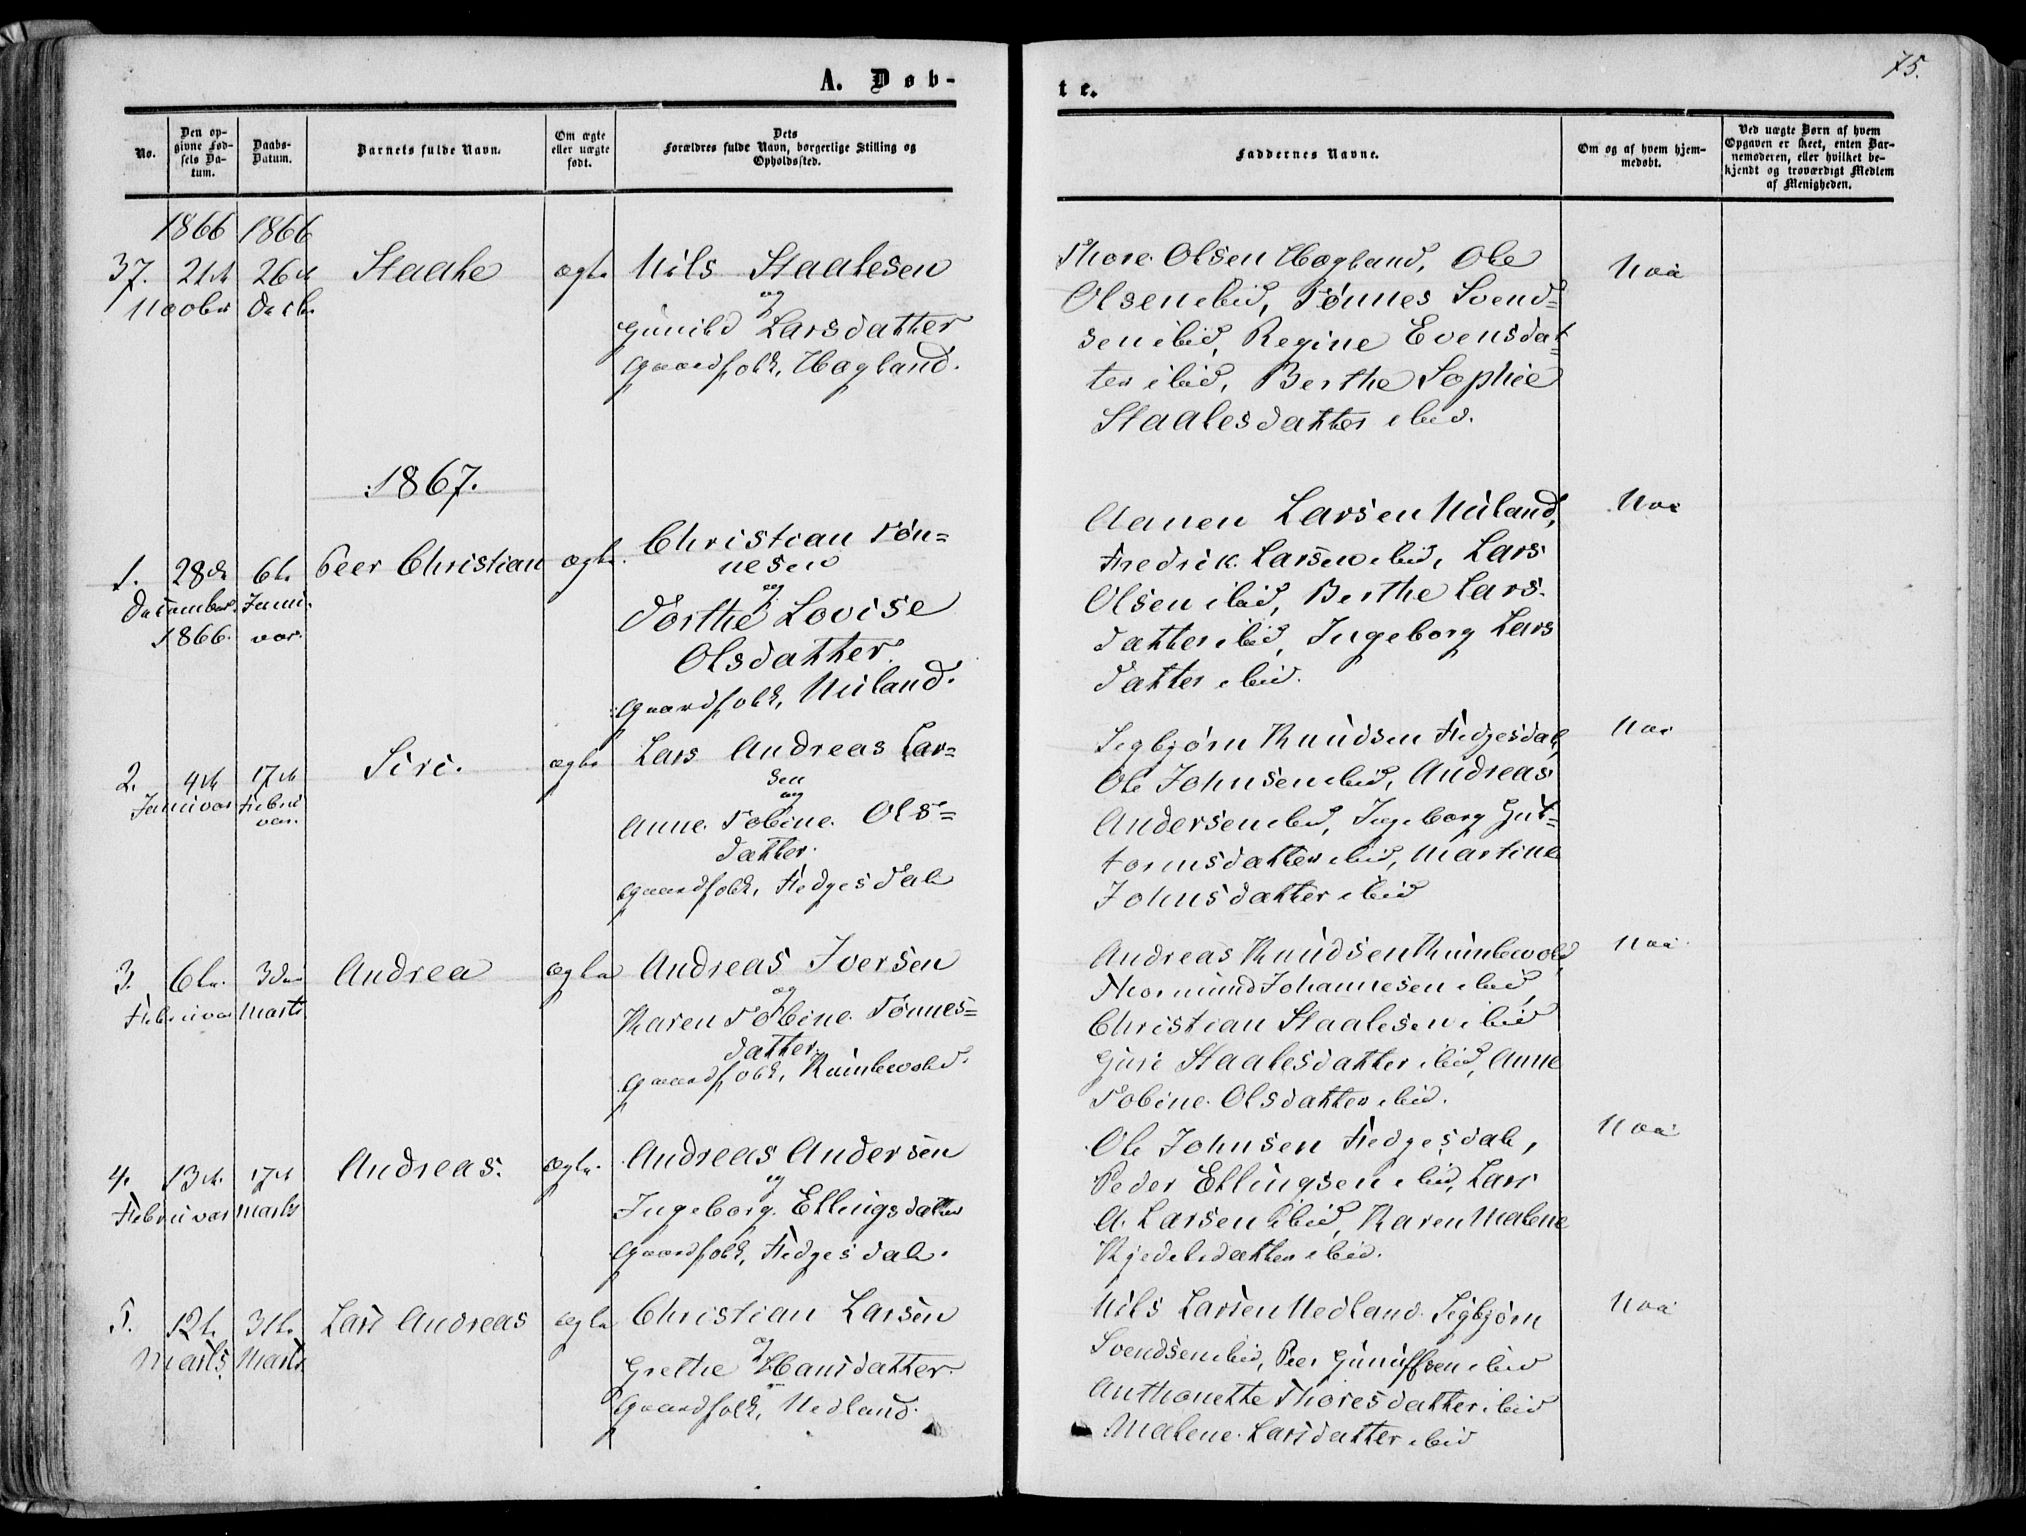 A. Døb-
te.
75.
No.
Den op-
givne Fød-
sels Da-
tum.
Daabs-
Datum.
Barnets fulde Navn.
Om ægte
eller uægte
født.
Dets
Forældres fulde Navn, borgerlige Stilling og
Opholdssted.
Faddernes Navne.
Om og af hvem hjem-
medøbt.
Ved uægte Børn af hvem
Opgaven er skeet, enten Bar-
nemoderen, eller hvilket be-
kjendt og troværdigt Medlem
af Menigheden.
1866 1866
37. 21de 26de Staale ægte Nils Staalesen
Decbr
og
Gunild Larsdatter
Gaardfolk, Hogland.
Thore Olsen Hogland, Ole
Olsen ibid, Tønnes Svend=
sen ibid, Regine Evensdat=
ter ibid, Berthe Sophie
Staalesdatter ibid.
1867.
1. 28de 6te Peer Christian ægte
December Janu-
1866. var
Christian Tøn=
nesen
og
Dorthe Lovise
Olsdatter.
Gaardfolk, Nuland.
Aanen Larsen Nuland,
Fredrik Larsen ibid, Lars
Olsen ibid, Berthe Lars-
datter ibid, Ingeborg Lars
datter ibid.
2. 4de 17de Siri. ægte
Januar Febru
var.
Lars Andreas Lar=
sen
og
Anne Tobine Ols=
datter.
Gaardfolk, Fledgesdal
Sigbjørn Knudsen Fledgesdal,
Ole Johnsen ibid, Andreas
Andersen ibid, Ingeborg Gut=
tormsdatter ibid, Martine
Johnsdatter ibid
3. 6te 3die Andrea ægte
Februar Marts
Andreas Iversen
og
Karen Tobine Tønnes=
datter
Gaardfolk, Kumlevold.
Andreas Knudsen Kumlevold,
Thormund Johannesen ibid,
Christian Staalesen ibid
Guri Staalesdatter ibid, Anne
Tobine Olsdatter ibid.
4. 13de 17de Andreas. ægte
Februar Marts
Andreas Andersen
og
Ingeborg Ellingsdatter
Gaardfolk, Fledgesdal.
Ole Johnsen Fledgesdal,
Peder Ellingsen ibid, Lars
A. Larsen ibid, Karen Malene
Kjedelsdatter ibid.
5. 12te 31te Lars Andreas ægte
Marts Marts
Christian Larsen
og
Grethe Hansdatter.
Gaardfolk, Nedland.
Nils Larsen Nedland Sigbjørn
Svendsen ibid, Peer ibid
Anthonette Thoresdatter ibid
Malene Larsdatter ibid